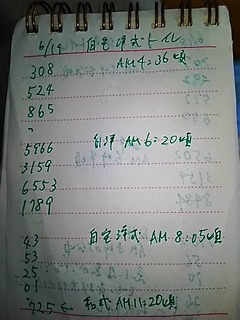 6/19 自宅洋式トイレ
308 AM4:36頃
524
865
〃
5966 自洋 AM6:20頃
3159
6553
1789
43 自宅洋式 AM 8:05頃
53
25
01
725← 和式 AM11:20頃